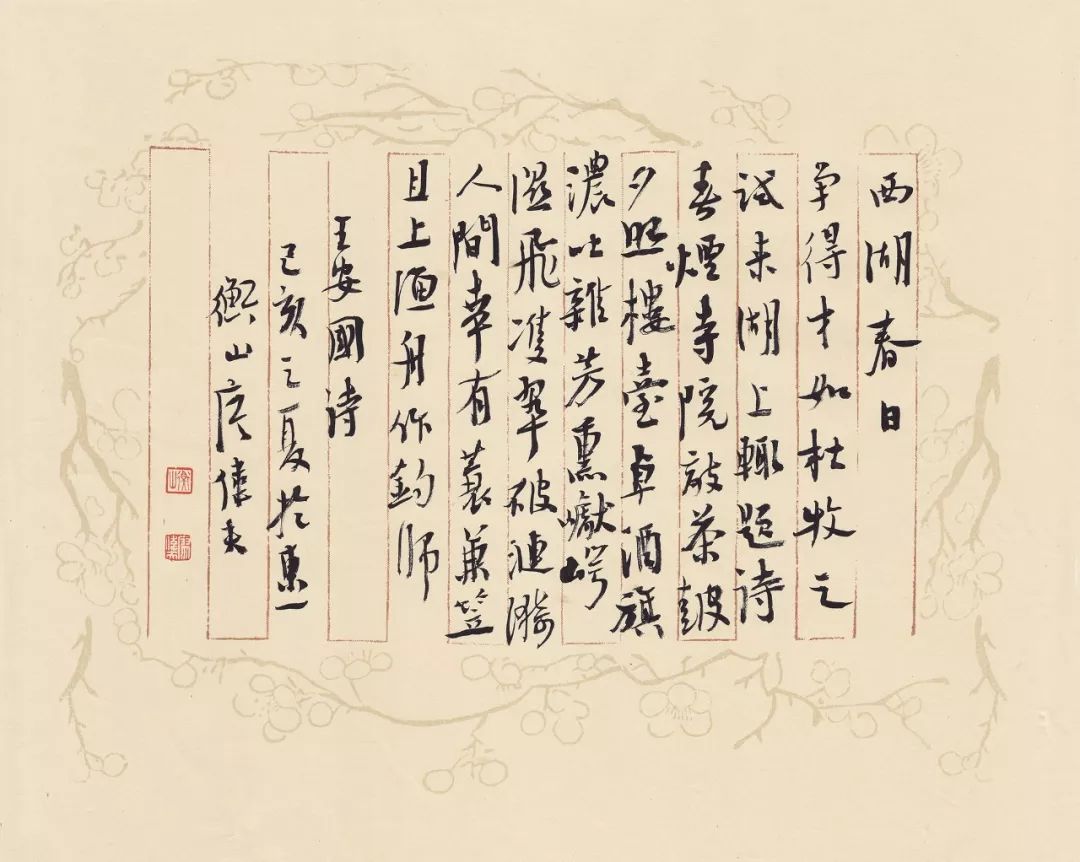 西湖春日
争得才如杜牧之
試来湖上輒題詩
春煙寺院敲茶皷
夕照樓臺卓酒旗
濃吐雜芳熏巘崿
濕飛雙翠破漣漪
人間幸有蓑兼笠
且上漁舟作釣師
王安國詩
己亥之夏於東一
衡山